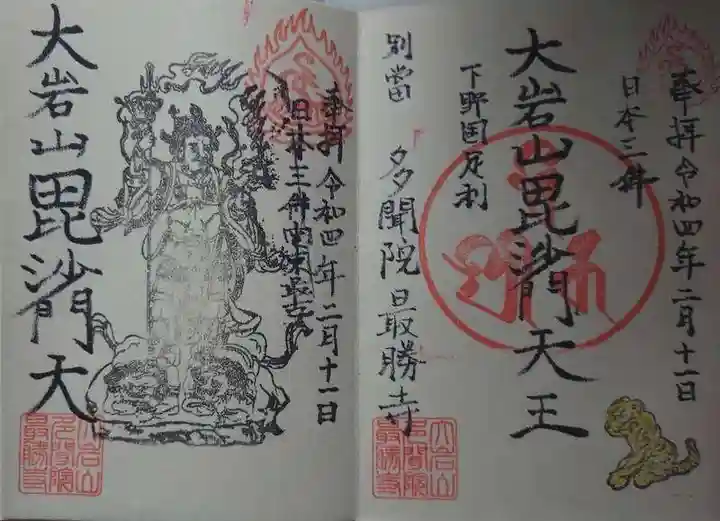 奉拝 令和四年二月十一日
日本三体
大岩山毘沙門天王
下野国足利
別當 多聞院最勝寺
大岩山
多聞院
最勝寺
奉拝 令和四年二月十一日
日本三体関東最古
大岩山毘沙門天
大岩山
多聞院
最勝寺